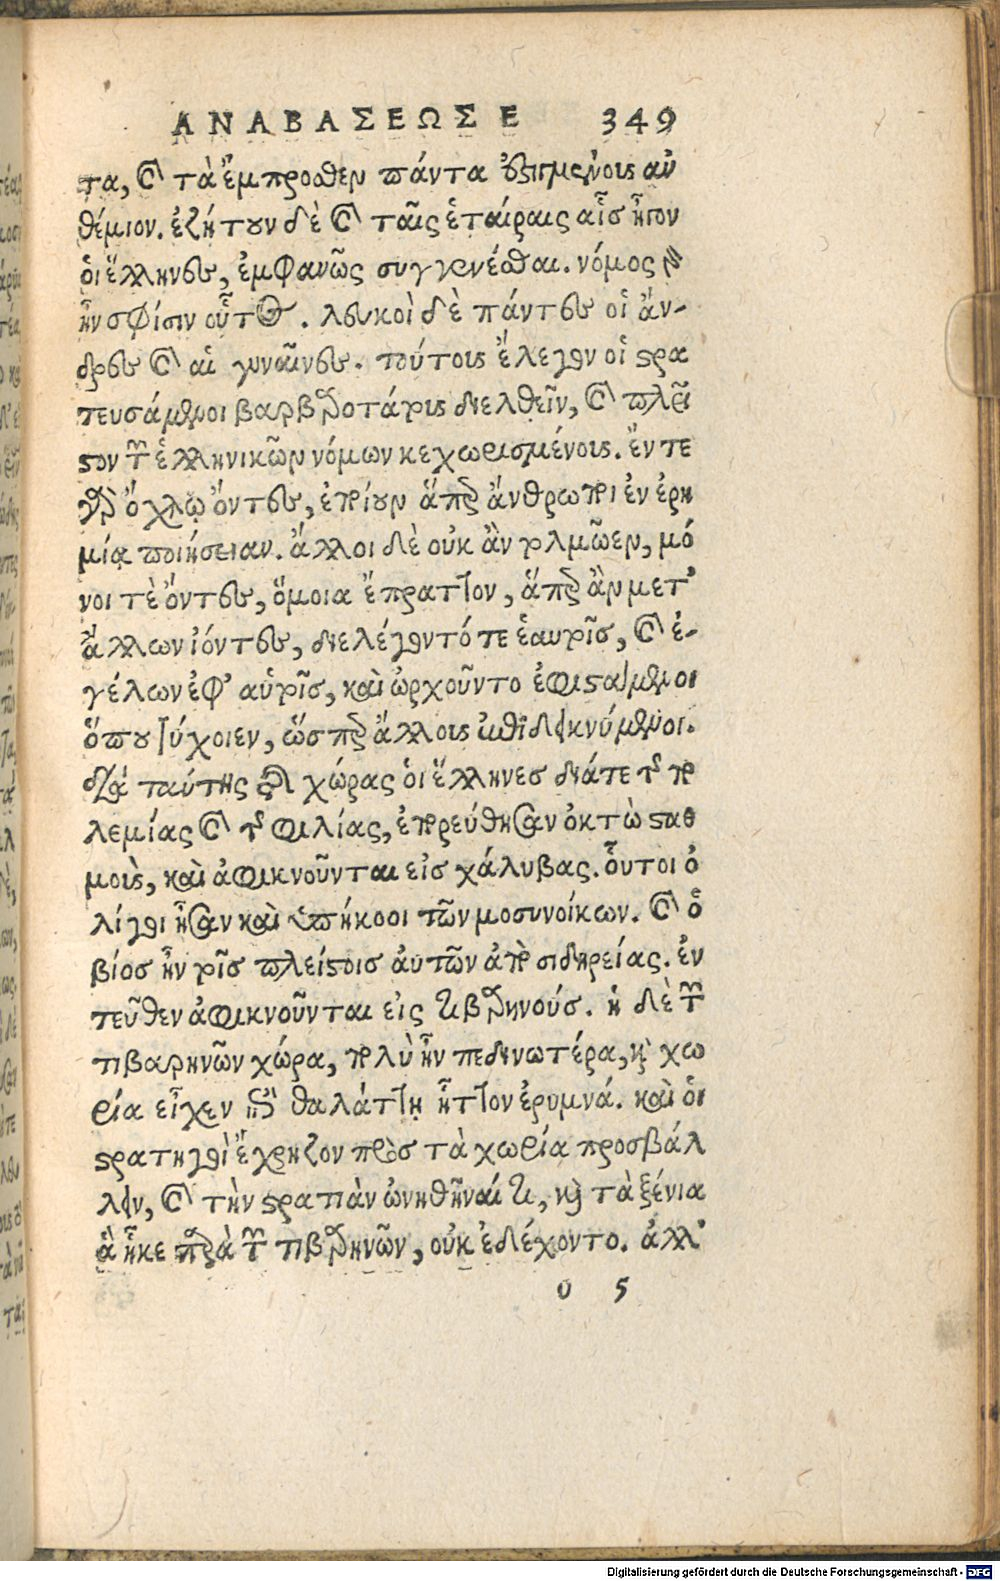 ΑΝΑΒΑΣΕΩΣ Ε 349
τα, καὶ τὰ ἔμπροσθεν πάντα ἐστιγμένους ἀν
θέμιον. ἐζήτουν δὲ καὶ ταῖς ἑταίραις αἷς ἦγον
οἱ ἕλληνες, ἐμφανῶς συγγενέσθαι. νόμος γὰρ
ἦν σφίσιν οὗτος. λευκοὶ δὲ πάντες οἱ ἄν-
δρες καὶ αἱ γυναῖκες. τούτους ἔλεγον οἱ στρα
τευσάμενοι βαρβαροτάτους διελθεῖν, καὶ πλεῖ
στον τῶν ἑλληνικῶν νόμων κεχωρισμένους. ἔν τε
γὰρ ὄχλῳ ὄντες, ἐποίουν ἅπερ ἄνθρωποι ἐν ἐρη
μίᾳ ποιήσειαν. ἄλλοι δὲ οὐκ ἂν τολμῷεν, μό
νοι τὲ ὄντες, ὅμοια ἔπραττον, ἅπερ ἂν μετ'
ἄλλων ἰόντες, διελέγοντό τε ἑαυτοῖς, καὶ ἐ-
γέλων ἐφ' αὑτοῖς, καὶ ὠρχοῦντο ἐφιστάμενοι
ὅπου τύχοιεν, ὥσπερ ἄλλοις ἐπιδεικνύμενοι.
διὰ ταύτης τῆς χώρας οἱ ἕλληνες διά τε τῆς πο
λεμίας καὶ τῆς φιλίας, ἐπορεύθησαν ὀκτὼ σταθ
μοὺς, καὶ ἀφικνοῦνται εἰς χάλυβας. οὗτοι ὀ
λίγοι ἦσαν καὶ ὑπήκοοι τῶν μοσυνοίκων. καὶ ὁ
βίος ἦν τοῖς πλείστοις αὐτῶν ἀπὸ σιδηρείας. ἐν
τεῦθεν ἀφικνοῦνται εἰς τιβαρηνούς. ἡ δὲ τῶν
τιβαρηνῶν χώρα, πολὺ ἦν πεδινωτέρα, καὶ χω
ρία εἶχεν ἐπὶ θαλάττῃ ἧττον ἐρυμνά. καὶ οἱ
στρατηγοὶ ἔχρηζον πρὸς τὰ χωρία προσβάλ
λειν, καὶ τὴν στρατιὰν ὠνηθῆναί τι, καὶ τὰ ξένια
ἃ ἧκε παρὰ τῶν τιβαρηνῶν, οὐκ ἐδέχοντο. ἀλλ'
υ 5
Digitalisierung gefördert durch die Deutsche Forschungsgemeinschaft - DFG